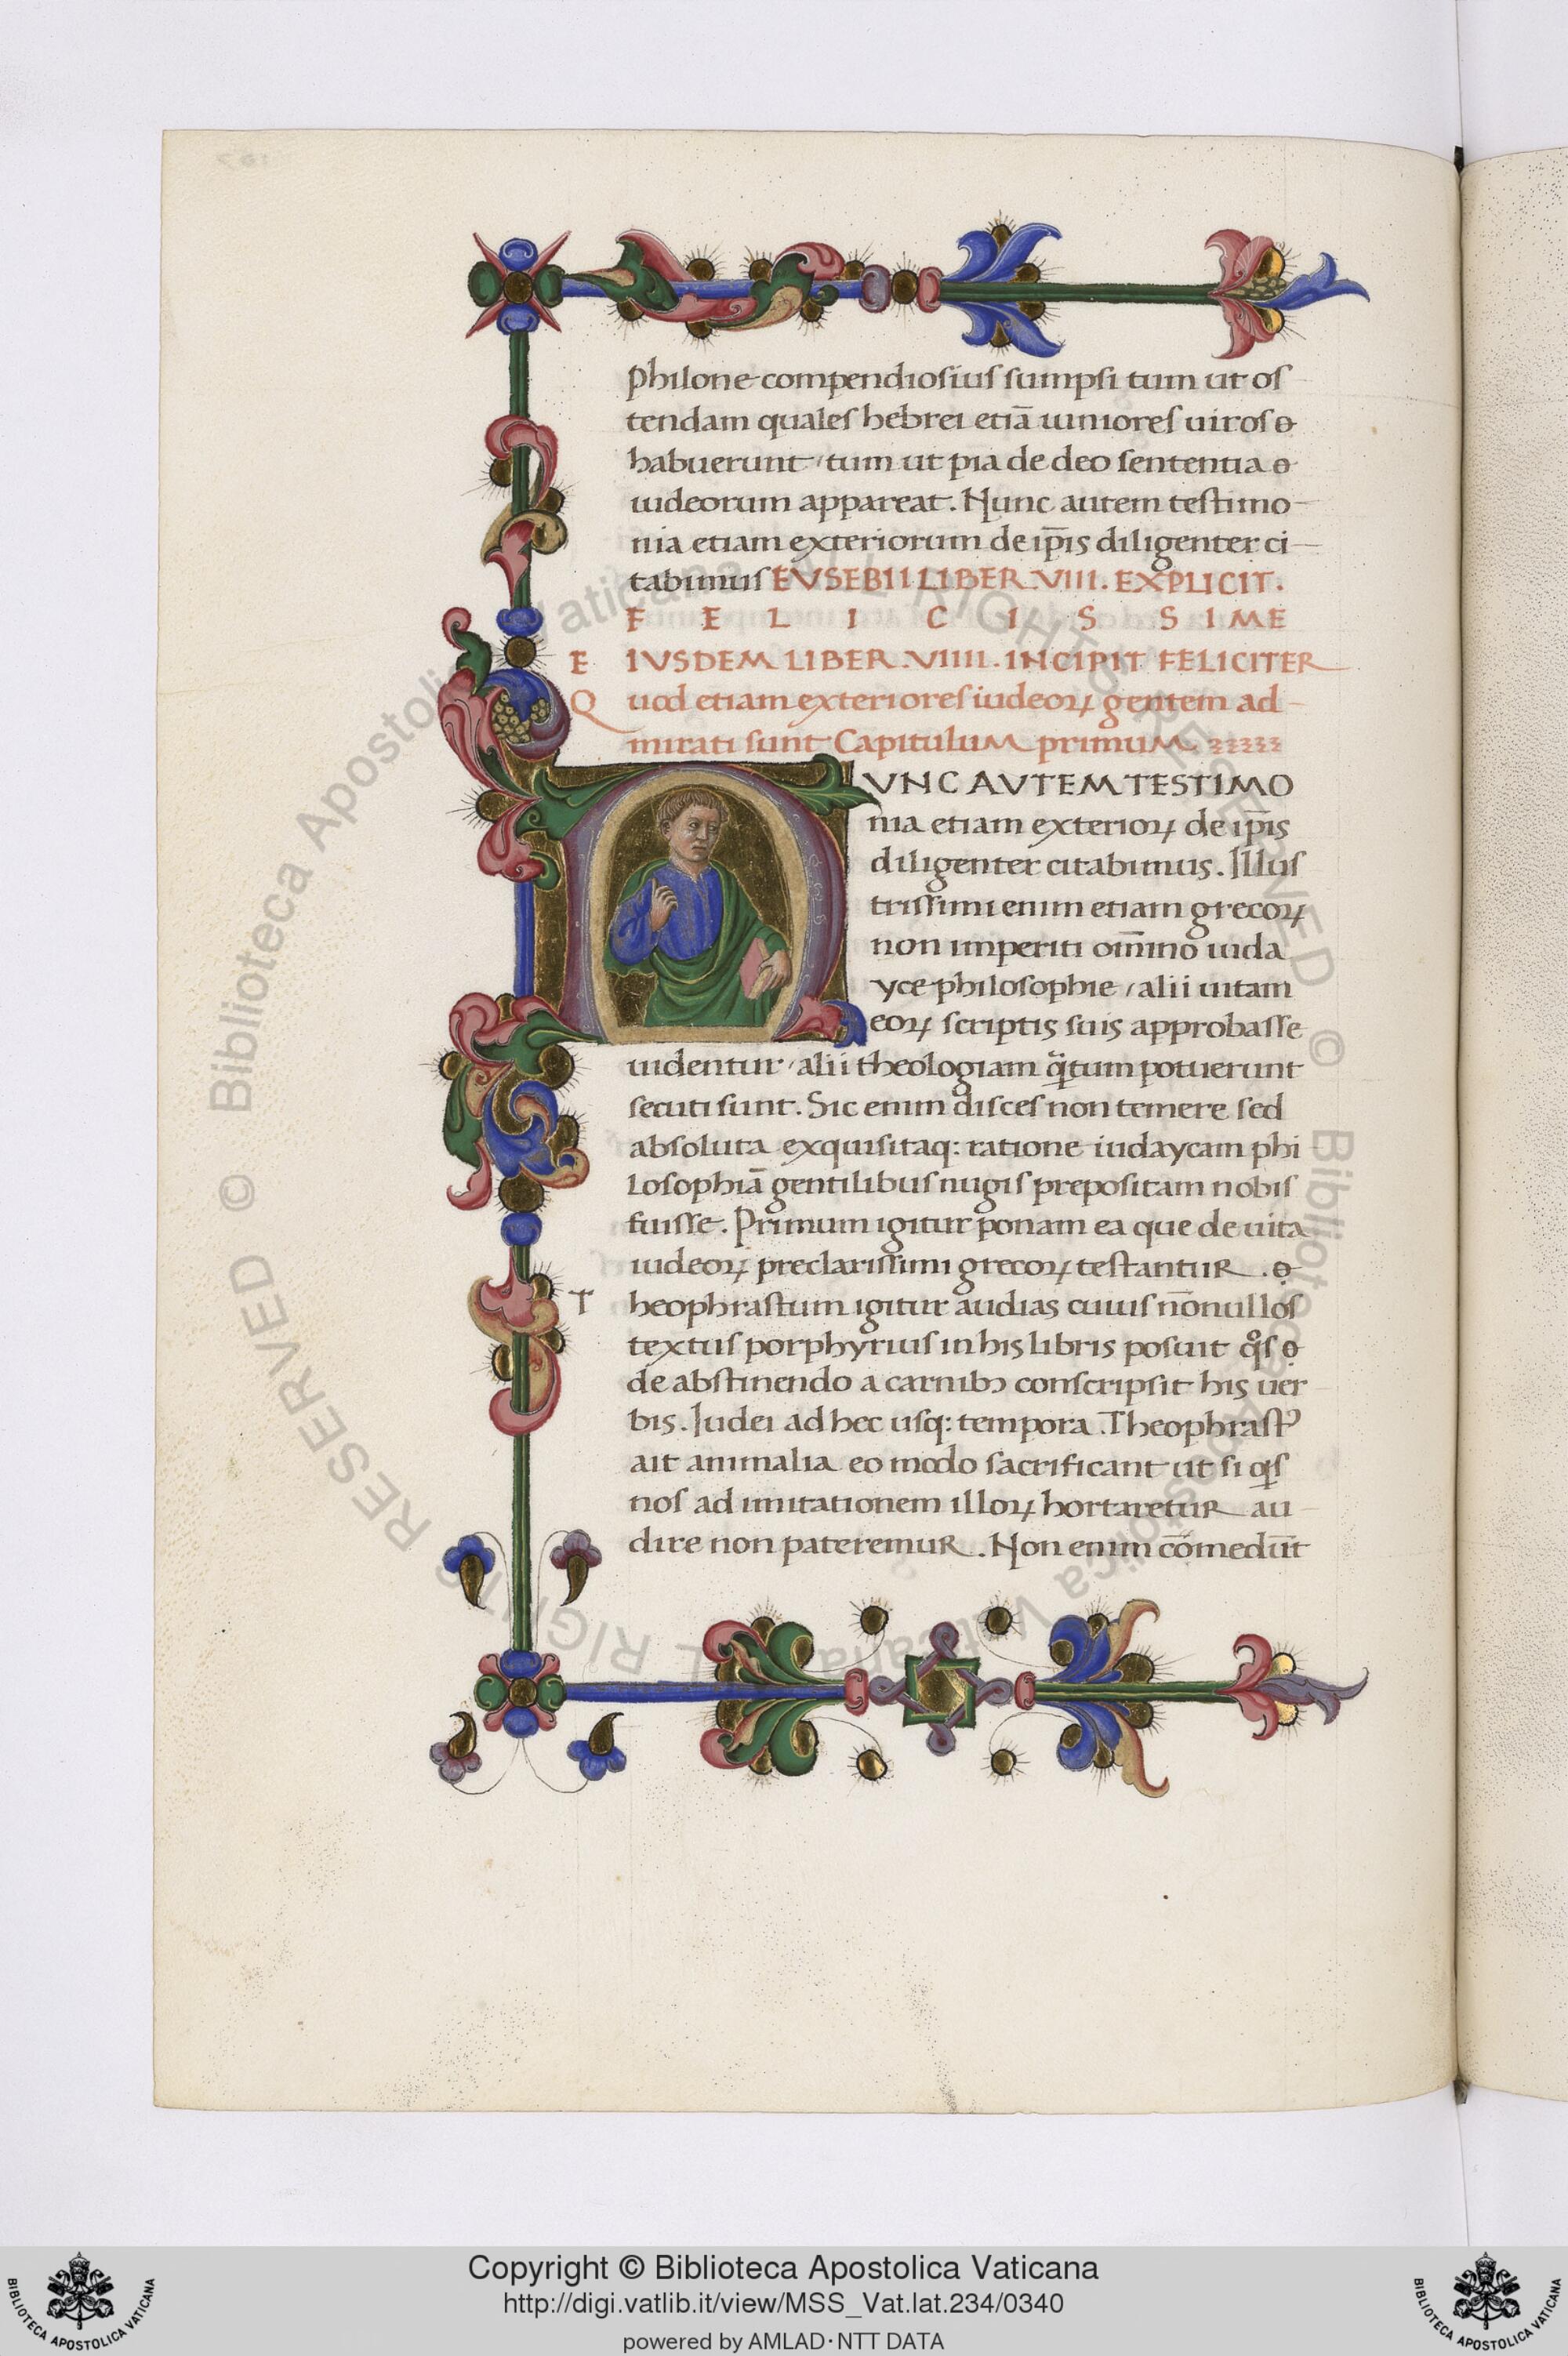 philone compendiosius sumpsi tum ut os
tendam quales hebrei etiā iuniores uiros
habuerunt / tum ut pia de deo sententia
iudeorum appareat. Nunc autem testimo
nia etiam exteriorum de ip̄is diligenter ci
tabimus EVSEBII LIBER VIII. EXPLICIT.
F E L I C I S S I M E
E IVSDEM LIBER VIIII. INCIPIT FELICITER
Q uod etiam exteriores iudeoꝝ gentem ad
mirati sunt Capitulum primum
VNC AVTEM TESTIMO
nia etiam exterioꝝ de ip̄is
diligenter citabimus. Illus
trissimi enim etiam grecoꝝ
non imperiti om̄ino iuda
yce philosophie / alii uitam
eoꝝ scriptis suis approbasse
uidentur / alii theologiam q̄tum potuerunt
secuti sunt. Sic enim disces non temere sed
absoluta exquisitaq: ratione iudaycam phi
losophiā gentilibus nugis prepositam nobis
fuisse. Primum igitur ponam ea que de uita
iudeoꝝ preclarissimi grecoꝝ testantur.
T heophrastum igitur audias cuius nōnullos
textus porphyrius in his libris posuit qͦs
de abstinendo a carnibꝫ conscripsit his uer
bis. Iudei ad hec usq: tempora. Theophrastꝰ
ait animalia eo modo sacrificant ut si qis
nos ad imitationem illoꝝ hortaretur au
dire non pateremur. Non enim cōmedūt
© Biblioteca Apostolica Vaticana ALL RIGHTS RESERVED
© Biblioteca Apostolica Vaticana ALL RIGHTS RESERVED
BIBLIOTECA APOSTOLICA VATICANA
Copyright © Biblioteca Apostolica Vaticana
http://digi.vatlib.it/view/MSS_Vat.lat.234/0340
powered by AMLAD·NTT DATA
BIBLIOTECA APOSTOLICA VATICANA